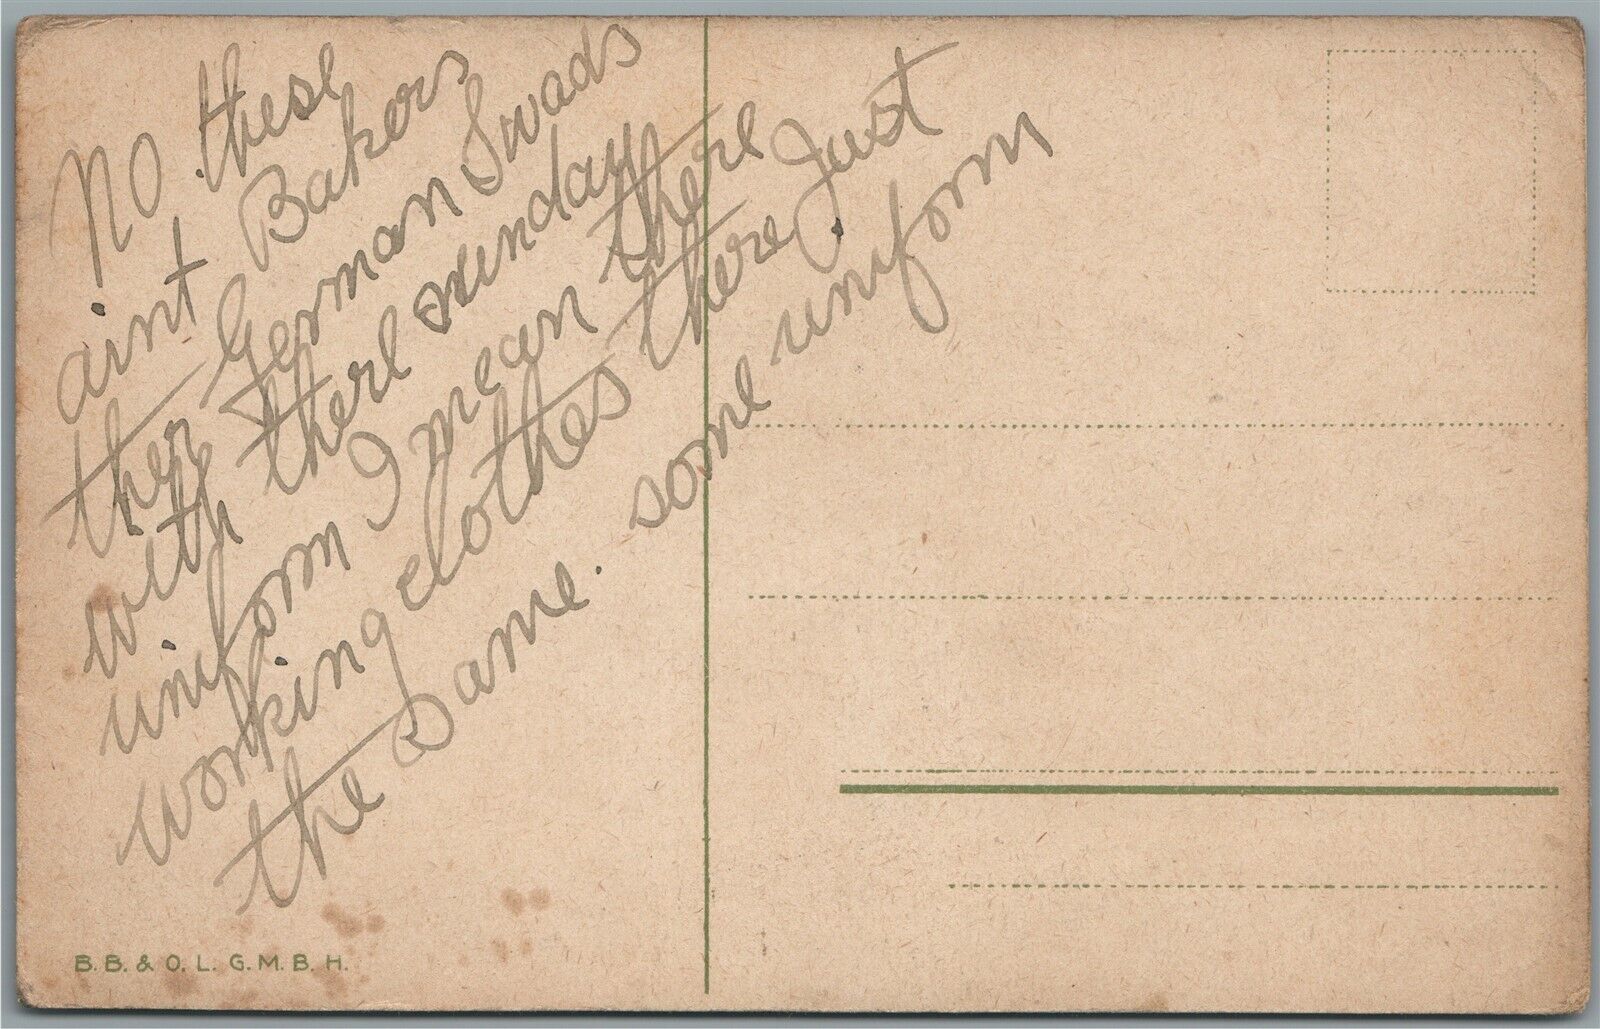 No these
aint Bakers
ther German Swads
with there sunday
uniform I mean there
working clothes there Just
the same. some uniform
B. B. & O. L. G. M. B. H.